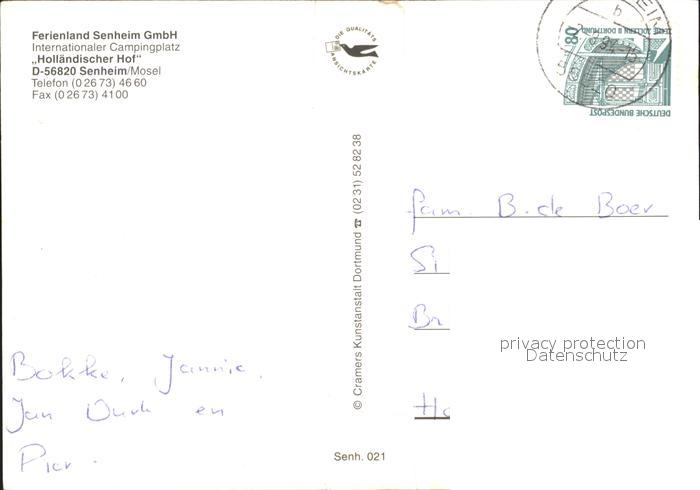 Ferienland Senheim GmbH
Internationaler Campingplatz
„Holländischer Hof"
D-56820 Senheim/Mosel
Telefon (0 26 73) 46 60
Fax (0 26 73) 41 00
DIE QUALITÄTS
ANSICHTSKARTE
80
ZECHE ZOLLERN II DORTMUND
DEUTSCHE BUNDESPOST
b
© Cramers Kunstanstalt Dortmund ☎ (02 31) 52 82 38
fam. B. de Boer
Si
Br
privacy protection
Datenschutz
Ho
Bokke, Jannie,
Jan Durk en
Pier.
Senh. 021